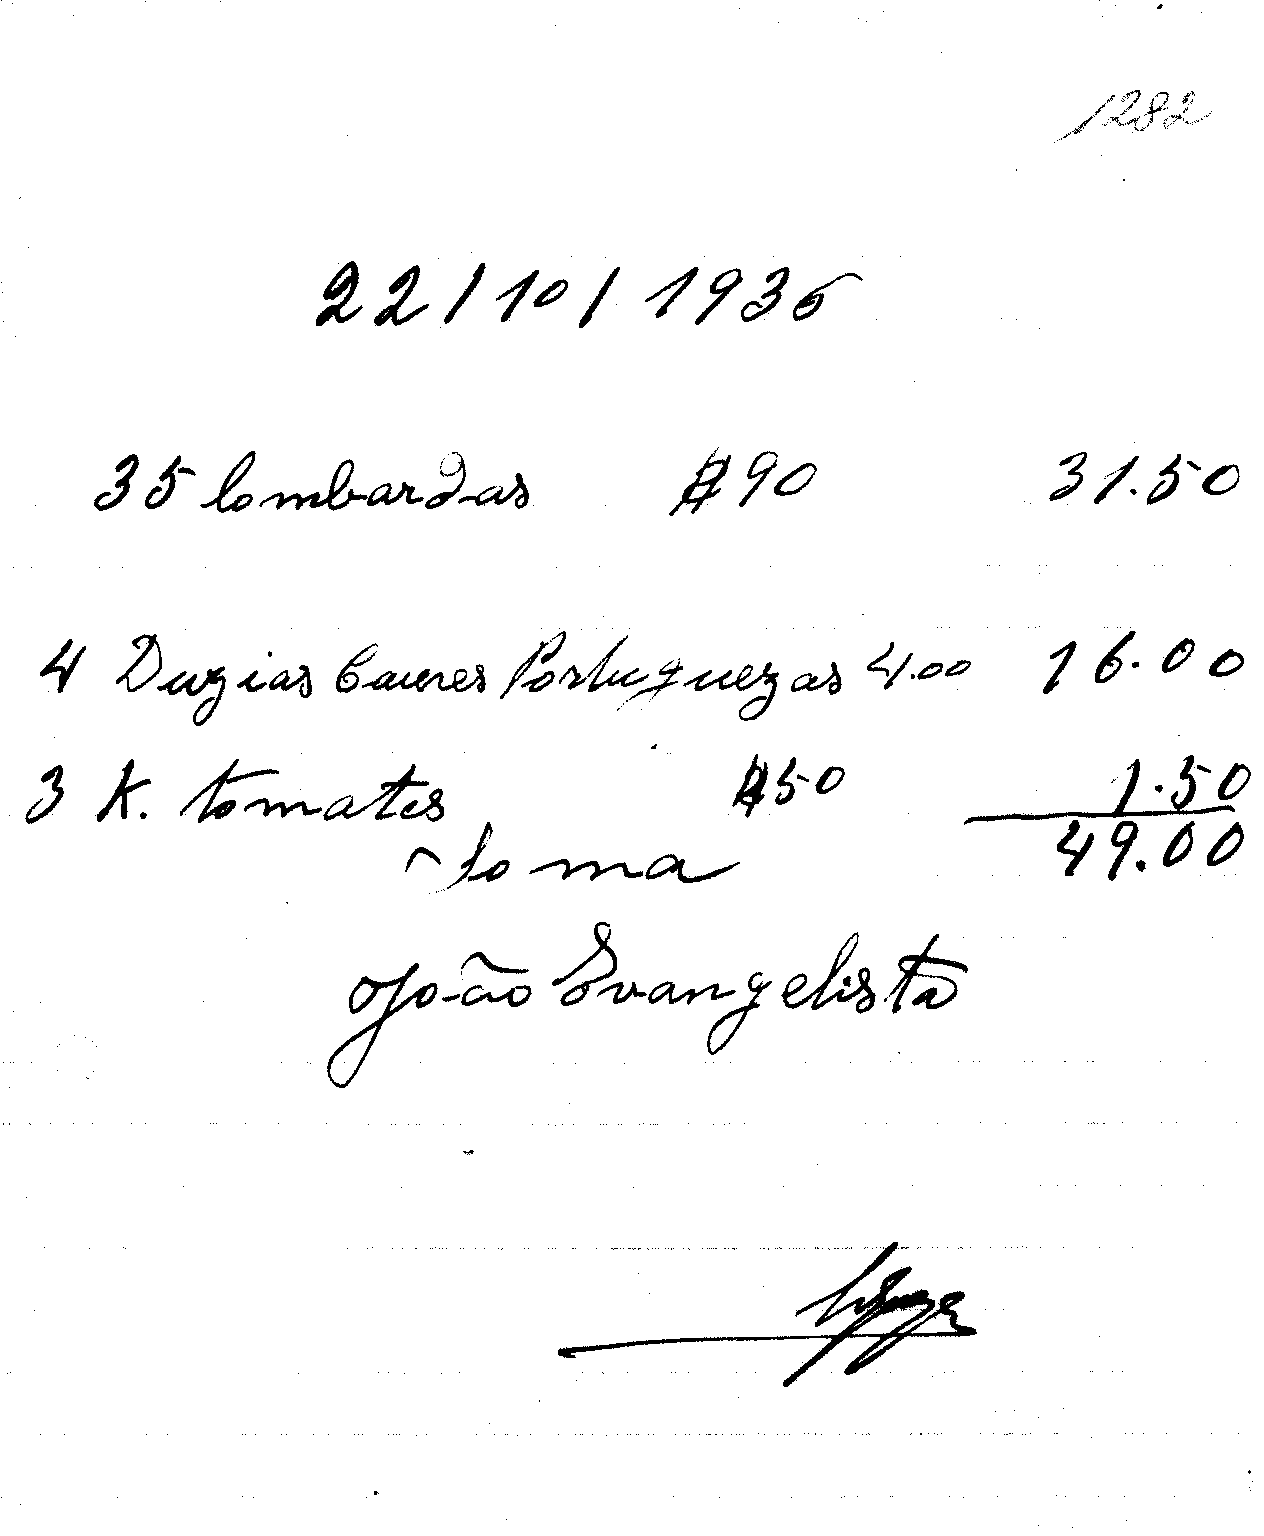 1282
22/10/1935
35 lombardas $90 31.50
4 Duzias Couves Portuguezas 4.00 16.00
3 K. tomates $50 1.50
Soma 49.00
João Evangelista